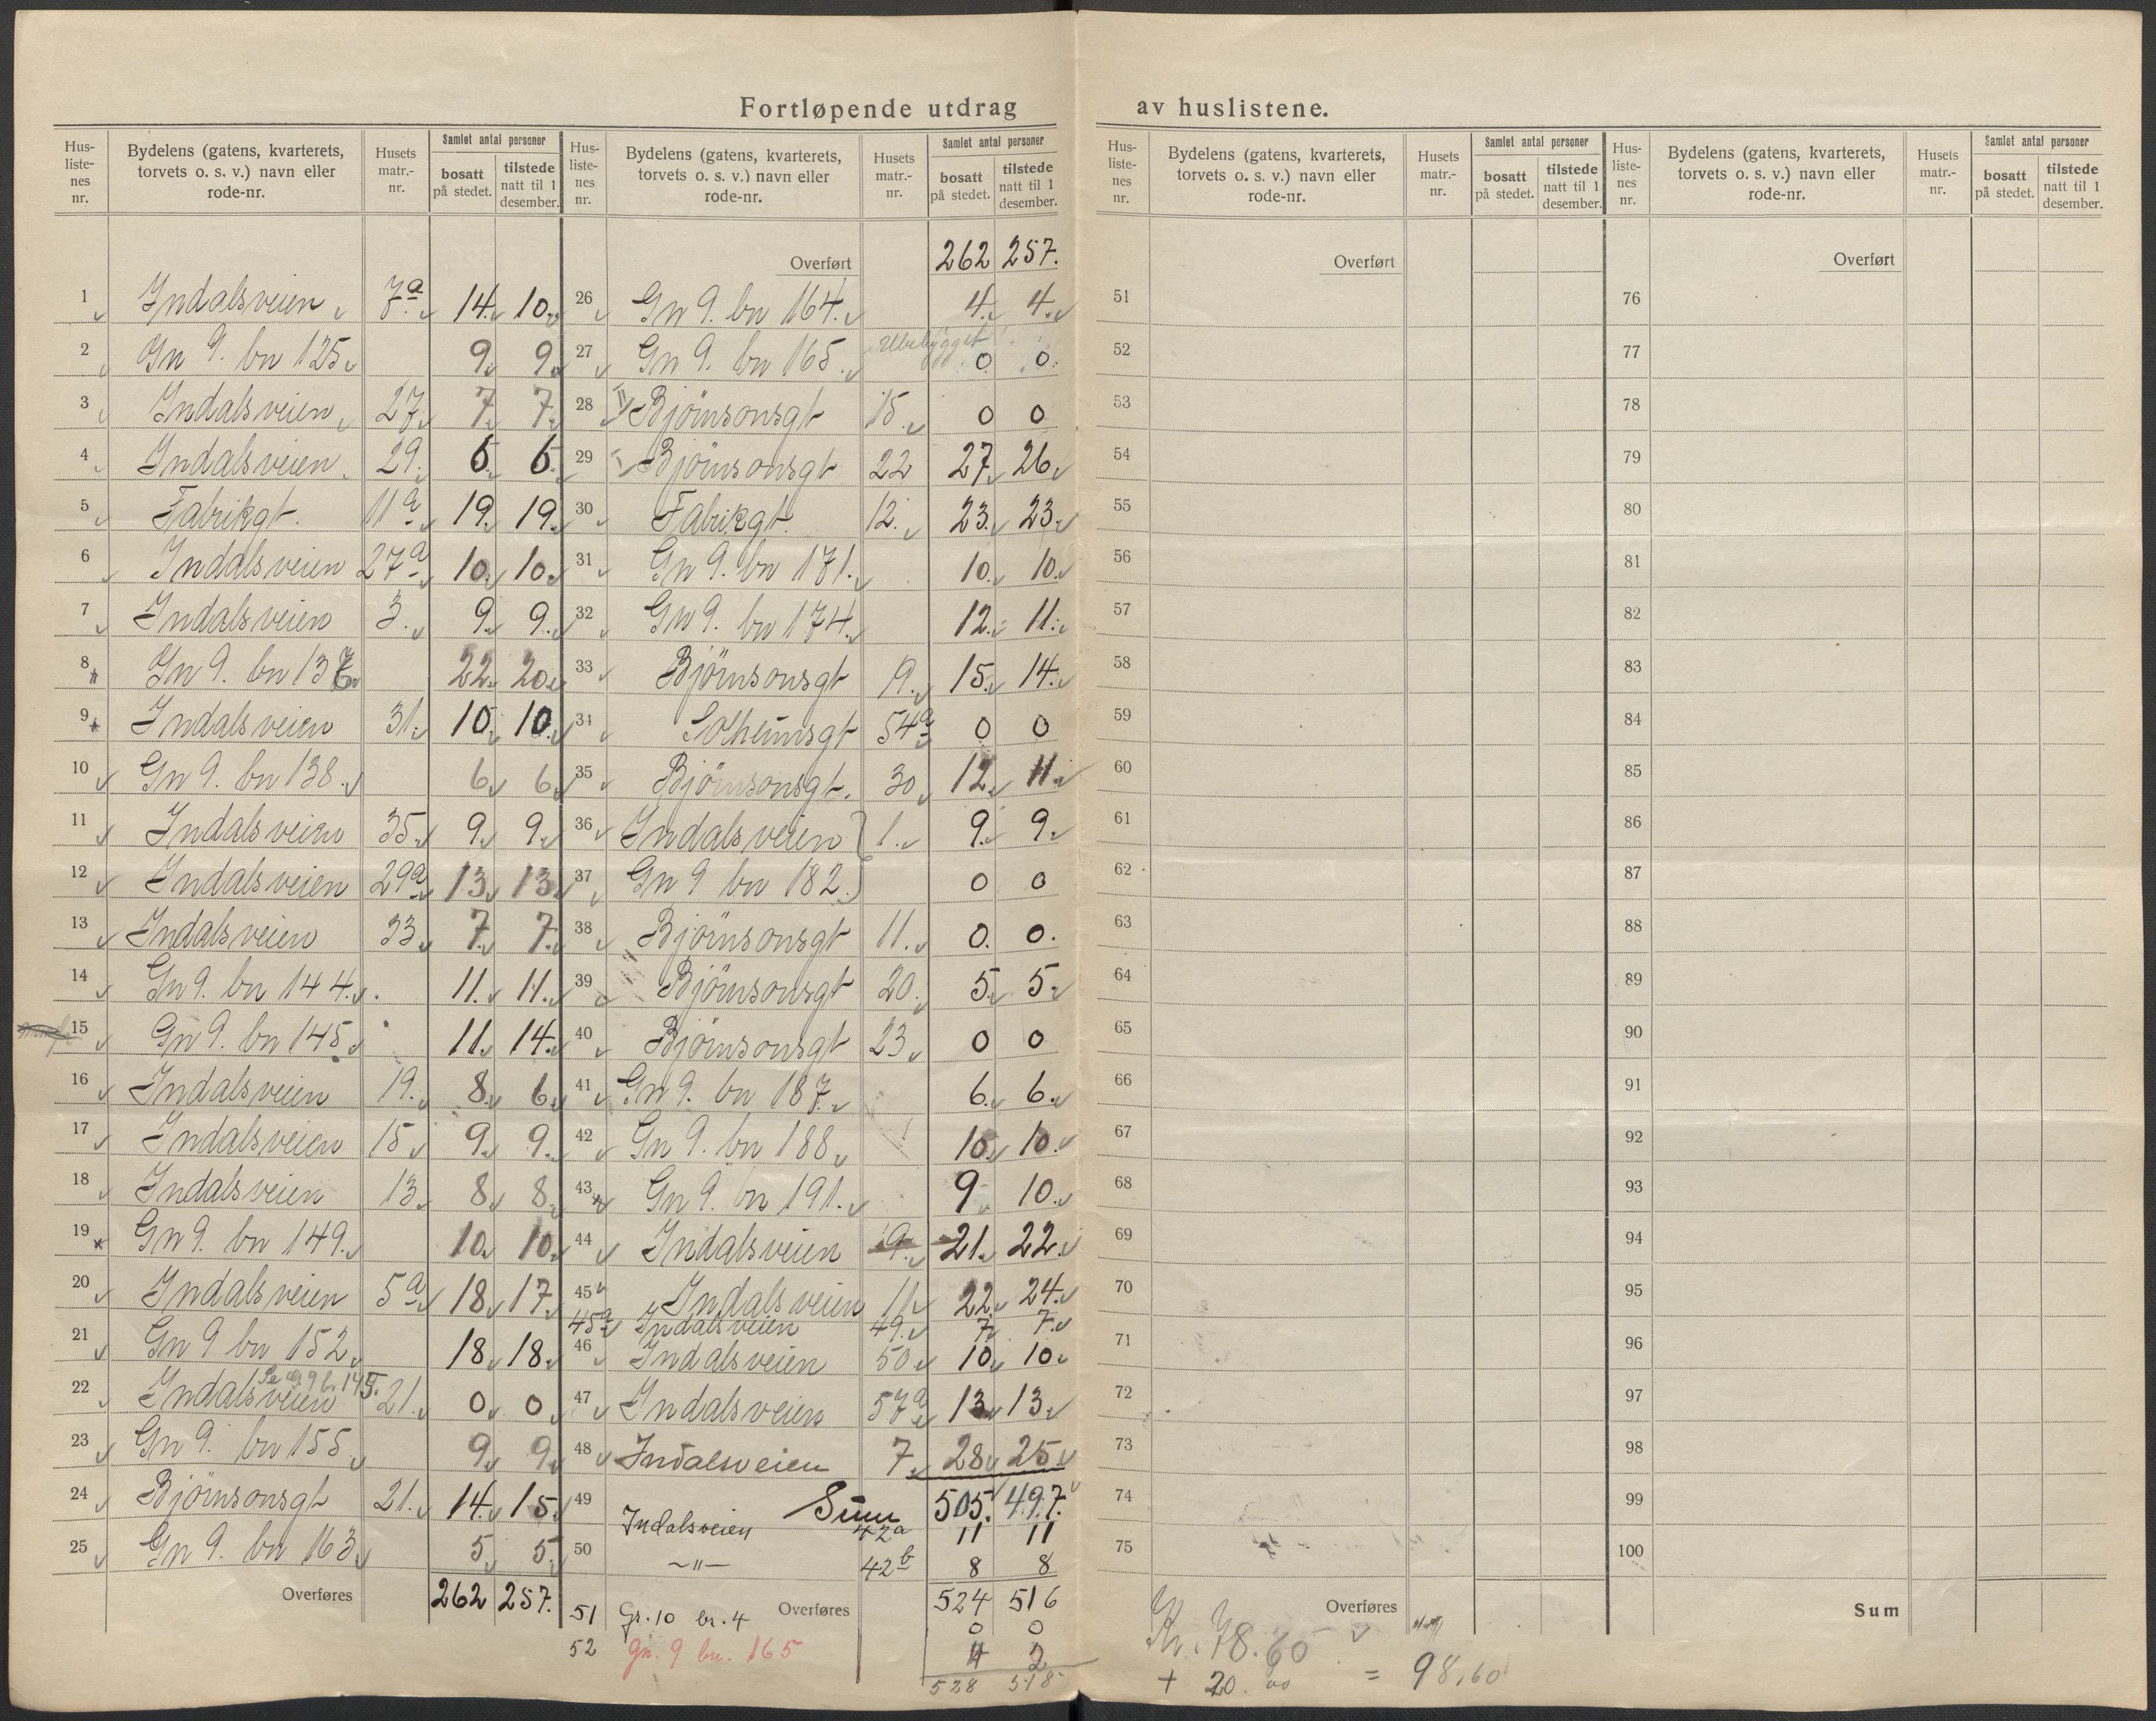 Fortløpende utdrag av huslistene.
Hus-listenes nr. | Bydelens (gatens, kvarterets, torvets o. s. v.) navn eller rode-nr. | Husets matr.-nr. | Samlet antal personer bosatt på stedet. | tilstede natt til 1 desember.
1 Indalsveien 7a 14. 10.
2 Gn 9. bn 125 9. 9.
3 Indalsveien 27 7. 7.
4 Indalsveien 29. 6. 6.
5 Fabrikgt. 11a 19. 19.
6 Indalsveien 27a 10. 10.
7 Indalsveien 3. 9. 9.
8 Gn 9. bn 137 22. 20.
9 Indalsveien 31. 10. 10.
10 Gn 9. bn 138. 6. 6.
11 Indalsveien 35. 9. 9.
12 Indalsveien 29a 13. 13.
13 Indalsveien 33. 7. 7.
14 Gn 9. bn 144. 11. 11.
15 Gn 9. bn 145. 11. 14.
16 Indalsveien 19. 8. 6.
17 Indalsveien 15 9. 9.
18 Indalsveien 13. 8. 8.
19 Gn 9. bn 149. 10. 10.
20 Indalsveien 5a 18. 17.
21 Gn 9 bn 152. 18. 18.
Se G. 9 b. 145.
22 Indalsveien 21. 0. 0.
23 Gn 9. bn 155. 9. 9.
24 Bjørnsonsgt 21. 14. 15.
25 Gn 9. bn 163. 5. 5.
Overføres 262 257.
Hus-listenes nr. | Bydelens (gatens, kvarterets, torvets o. s. v.) navn eller rode-nr. | Husets matr.-nr. | Samlet antal personer bosatt på stedet. | tilstede natt til 1 desember.
Overført 262 257.
26 Gn 9. bn 164. 4. 4.
27 Gn 9. bn 165. Ubebygget 0. 0.
28 II Bjørnsonsgt 15. 0 0
29 I Bjørnsonsgt 22 27. 26.
30 Fabrikgt. 12. 23. 23.
31 Gn 9. bn 171. 10. 10.
32 Gn 9. bn 174. 12. 11.
33 Bjørnsonsgt 19. 15. 14.
34 Solheimsgt 54a 0 0
35 Bjørnsonsgt. 30. 12. 11.
36 Indalsveien 1. 9. 9.
37 Gn 9 bn 182. 0 0
38 Bjørnsonsgt 11. 0. 0.
39 Bjørnsonsgt 20. 5. 5.
40 Bjørnsonsgt 23. 0 0
41 Gn 9. bn 187. 6. 6.
42 Gn 9. bn 188. 10. 10.
43 Gn 9. bn 191. 9. 10.
44 Indalsveien 9. 21. 22.
45 Indalsveien 11. 22. 24.
45a Indalsveien 49. 7. 7.
46 Indalsveien 50. 10. 10.
47 Indalsveien 57a 13. 13.
48 Indalsveien 7. 28. 25.
49 Sum 505. 497.
Indalsveien 42a 11 11
50 —"— 42b 8 8
Overføres 524 516
51 Gr. 10 br. 4 0 0
52 gn. 9 bn. 165 4 2
528 518
Hus-listenes nr. | Bydelens (gatens, kvarterets, torvets o. s. v.) navn eller rode-nr. | Husets matr.-nr. | Samlet antal personer bosatt på stedet. | tilstede natt til 1 desember.
Overført
51
52
53
54
55
56
57
58
59
60
61
62
63
64
65
66
67
68
69
70
71
72
73
74
75
Overføres
Kr. 78.60
+ 20.00 = 98.60
Hus-listenes nr. | Bydelens (gatens, kvarterets, torvets o. s. v.) navn eller rode-nr. | Husets matr.-nr. | Samlet antal personer bosatt på stedet. | tilstede natt til 1 desember.
Overført
76
77
78
79
80
81
82
83
84
85
86
87
88
89
90
91
92
93
94
95
96
97
98
99
100
Sum